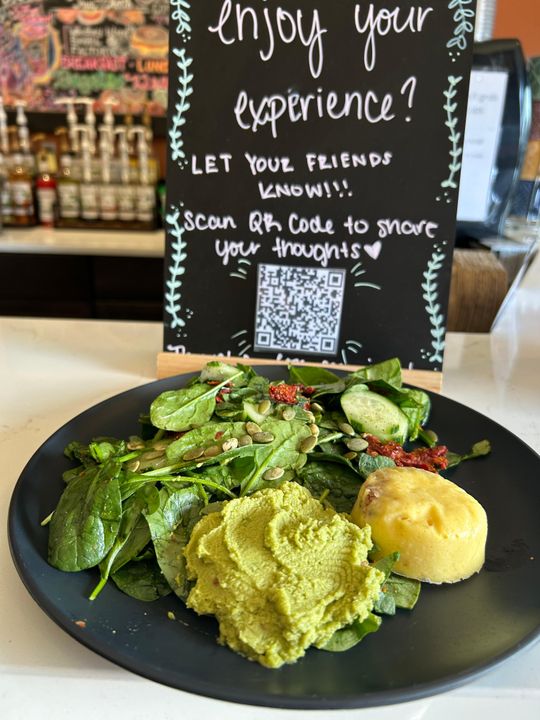 enjoy your
experience?
LET YOUR FRIENDS
KNOW!!!
Scan QR Code to share
your thoughts♥